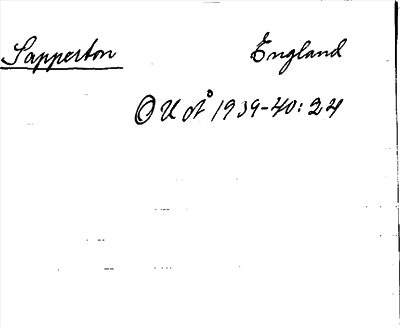 Sapperton England
OUÅ 1939-40:24